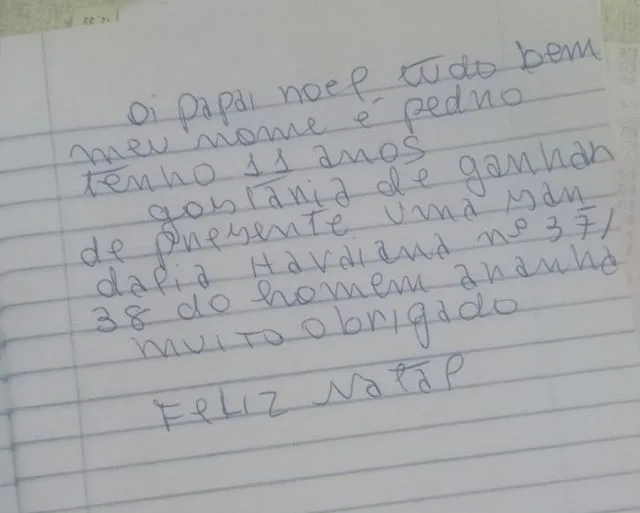 oi papai noel tudo bem
meu nome é pedno
tenho 11 anos
gostania de ganhan
de pnesente uma san
dalia Havaiana nº 37/
38 do homem ananha
muito obrigado
FELIZ Natal